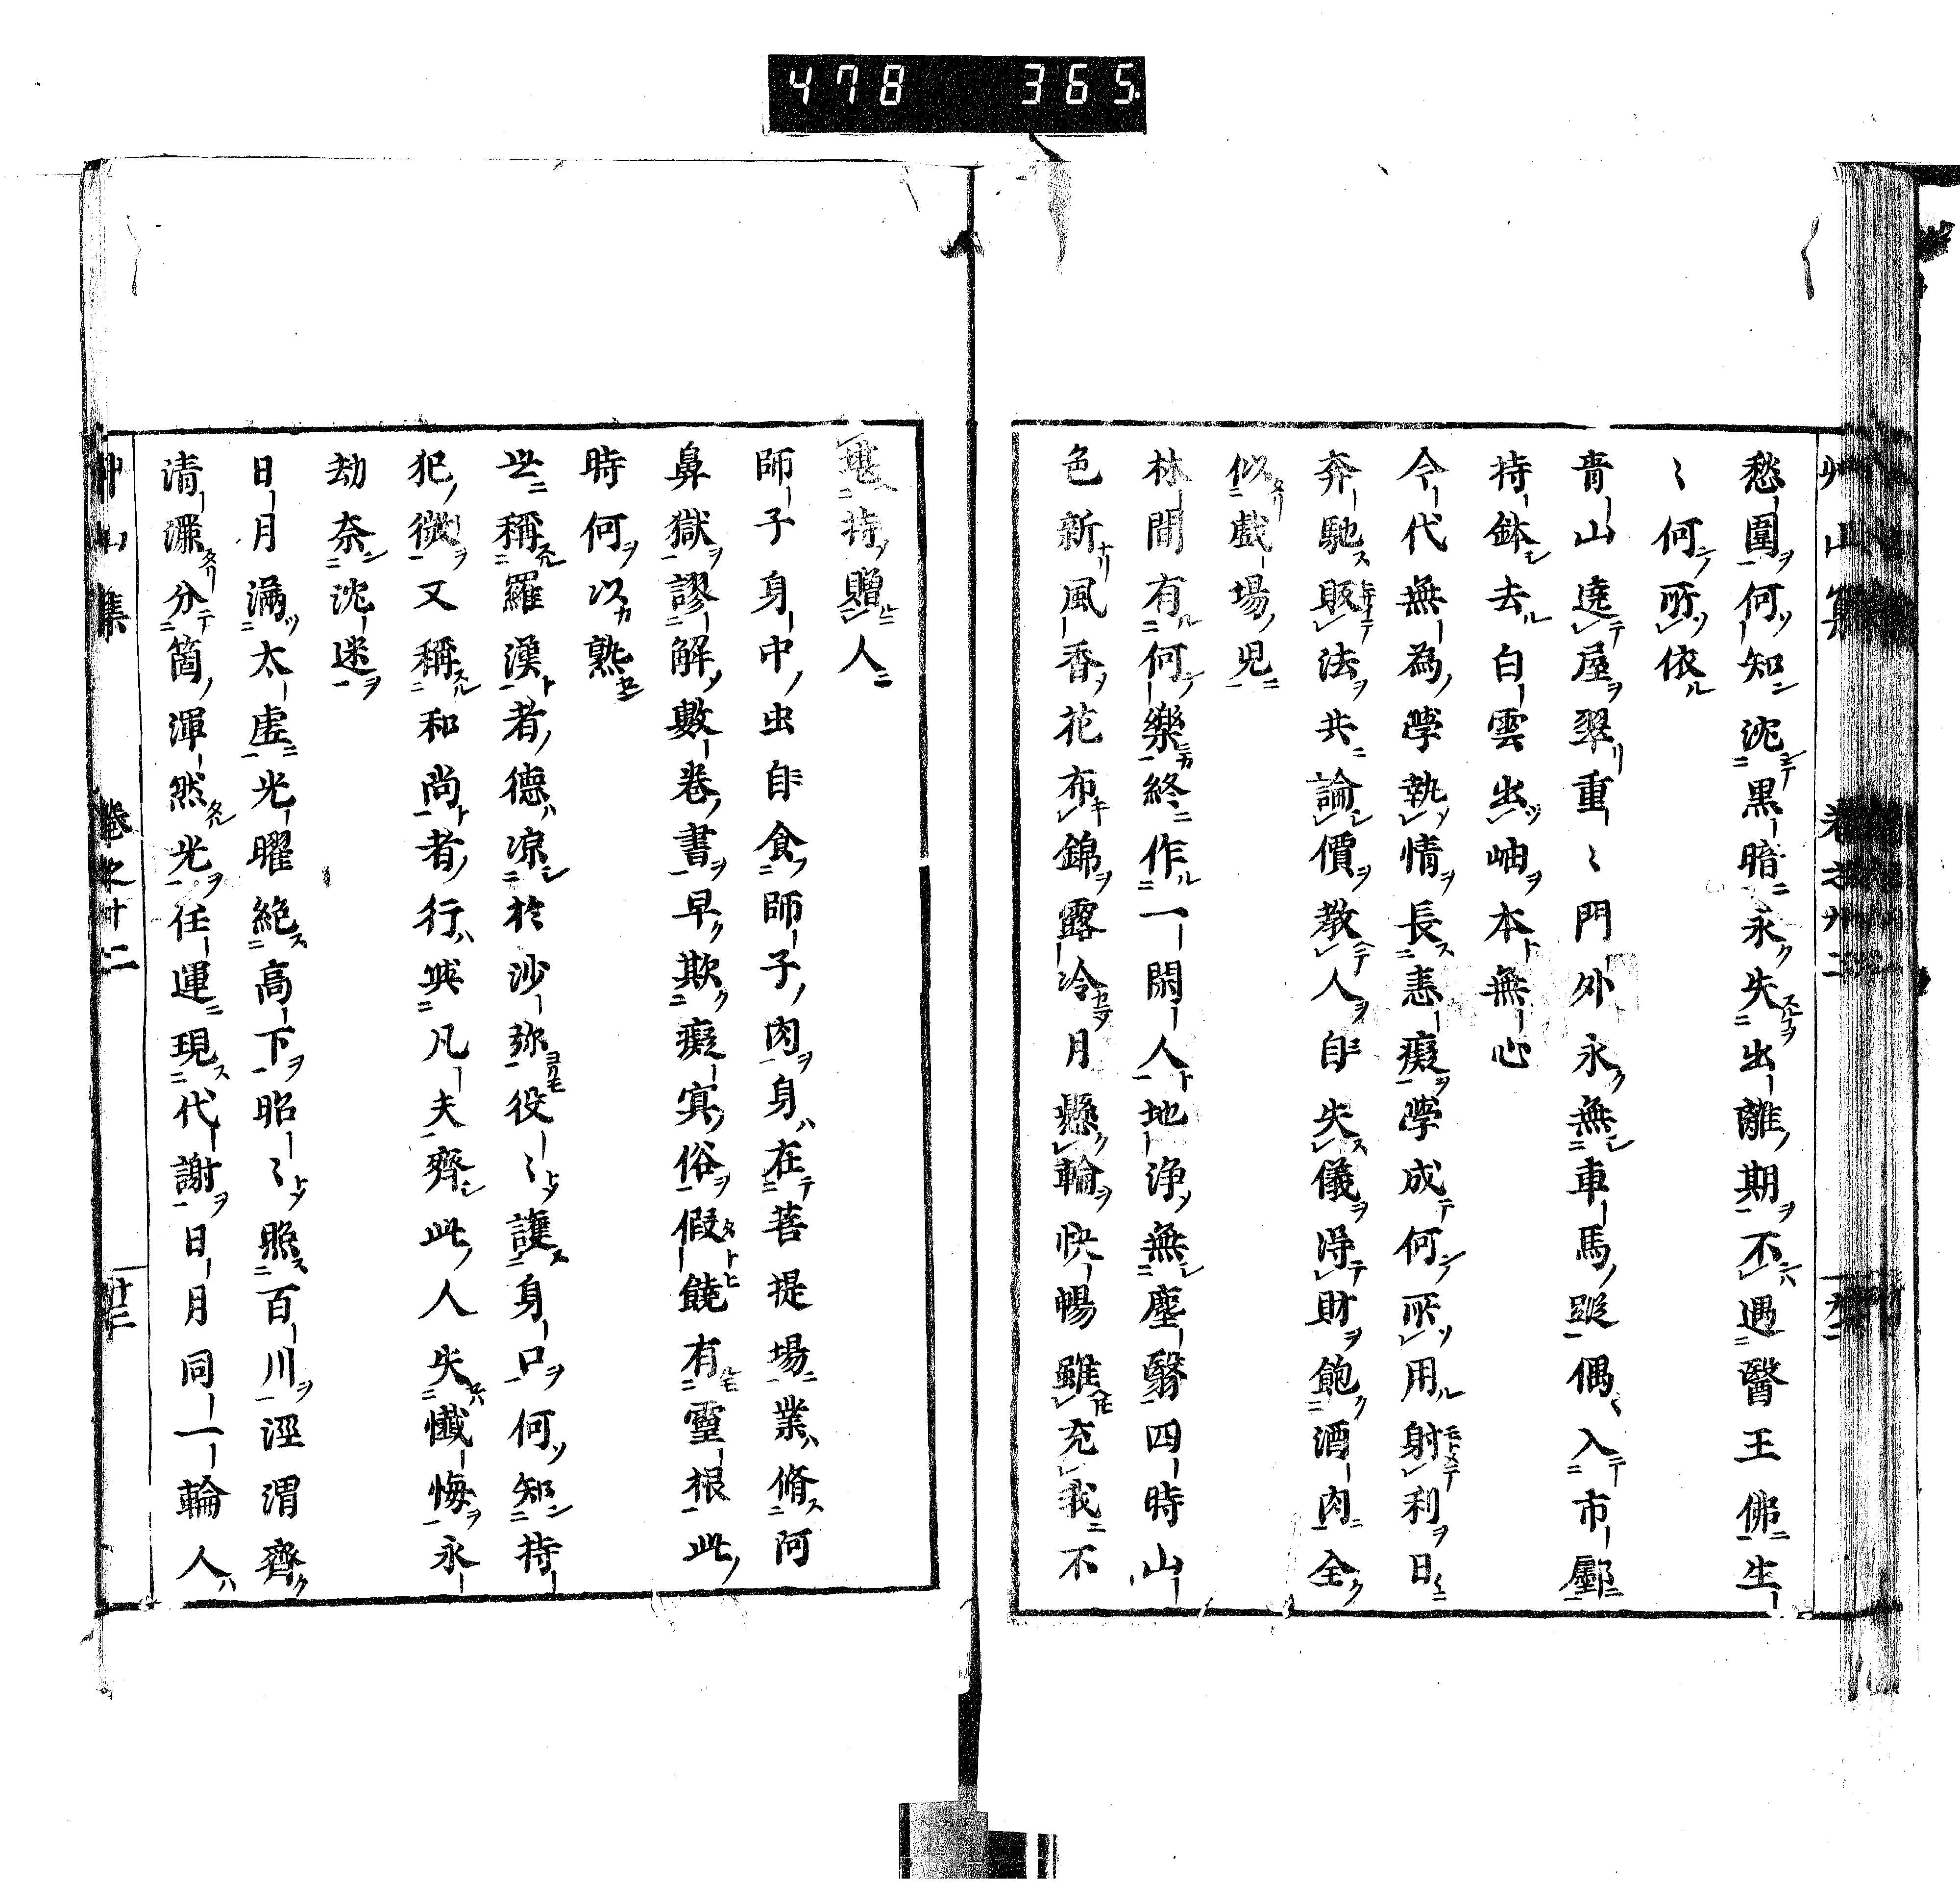 478 365.
愁圍何知沈黒暗永失出離期不遇醫王佛生
〻何所依
青山遶屋翠重〻門外永無車馬蹤偶入市鄽
持鉢去白雲出岫本無心
今代無為學執情長恚癡學成何所用射利日
奔馳販法共論價教人自失儀得財飽酒肉全
似戲場兒
林間有何樂終作一閑人地浄無塵翳四時山
色新風香花布錦露冷月懸輪快暢雖充我不
堪持贈人
師子身中虫自食師子肉身在菩提場業脩阿
鼻獄謬解數巻書早欺癡寘俗假饒有靈根此
時何以熟
世稱羅漢者德凉於沙弥役〻護身口何知持
犯微又稱和尚者行與凡夫齊此人失懺悔永
劫奈沈迷
日月滿太虚光曜絶高下昭〻照百川涇渭齊
清濂分箇渾然光任運現代謝日月同一輪人
艸山集 卷之廿二